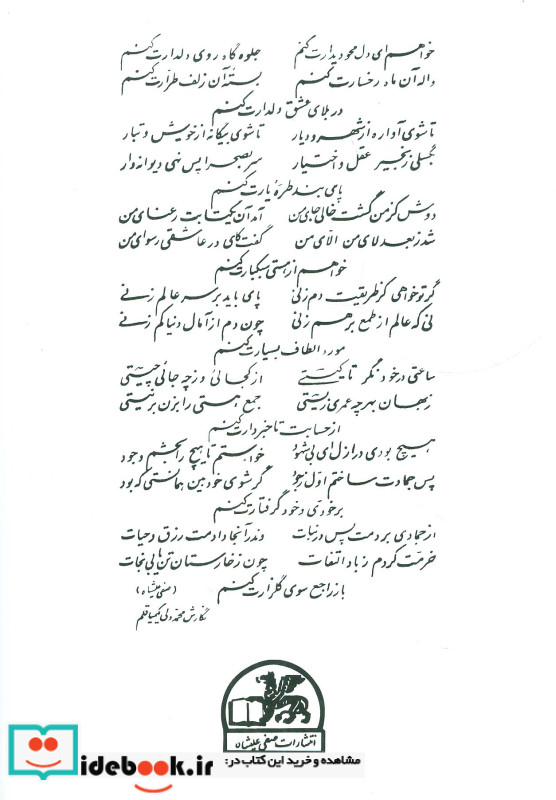 خواهم ای دل محو دیدارت کنم جلوه گاه روی دلدارت کنم
واله آن ماه رخسارت کنم بستهٔ آن زلف طرارت کنم
در بلای عشق دلدارت کنم
تا شوی آواره از شهر و دیار تا شوی بیگانه از خویش و تبار
بگسلی زنجیر عقل و اختیار سر بصحرا پس نهی دیوانه وار
پای بند طرهٔ یارت کنم
دوش کز من گشت خالی جای من آمد آن یکتا بت رعنای من
شد ز بعد لای من الّای من گفت کای در عاشقی رسوای من
خواهم از هستی سبکبارت کنم
گر تو خواهی کز طریقت دم زنی پای باید بر سر عالم زنی
نی که عالم از طمع بر هم زنی چون دم از آمال دنیا کم زنی
مورد الطاف بسیارت کنم
ساعتی در خود نگر تا کیستی از کجائی وز چه جائی چیستی
در جهان بهر چه عمری زیستی جمع هستی را بزن بر نیستی
از حسابت تا خبردارت کنم
هیچ بودی در ازل ای بی شهود خواستم تا هیچ را بخشم وجود
پس جمادت ساختم اول ز جود گر شوی خودبین همانستی که بود
بر خودی و خود گرفتارت کنم
از جمادی بردمت پس در نبات وندر آنجا دادمت رزق و حیات
خرمت کردم ز باد التفات چون ز خارستان تن یابی نجات
باز راجع سوی گلزارت کنم (صفی علیشاه)
نگارش محمد ولی کیمیا قلم
انتشارات صفی علیشاه
مشاهده و خرید این کتاب در:
idebook.ir